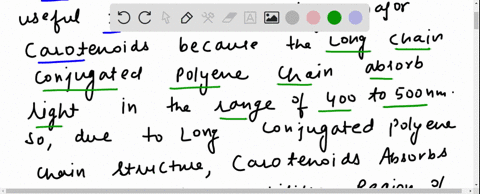 useful major
Carotenoids because the Long chain
conjugated Polyene chain absorb
light in the range of 400 to 500nm.
so, due to Long Conjugated polyene
chain structure, Carotenoids Absorbs
Region of